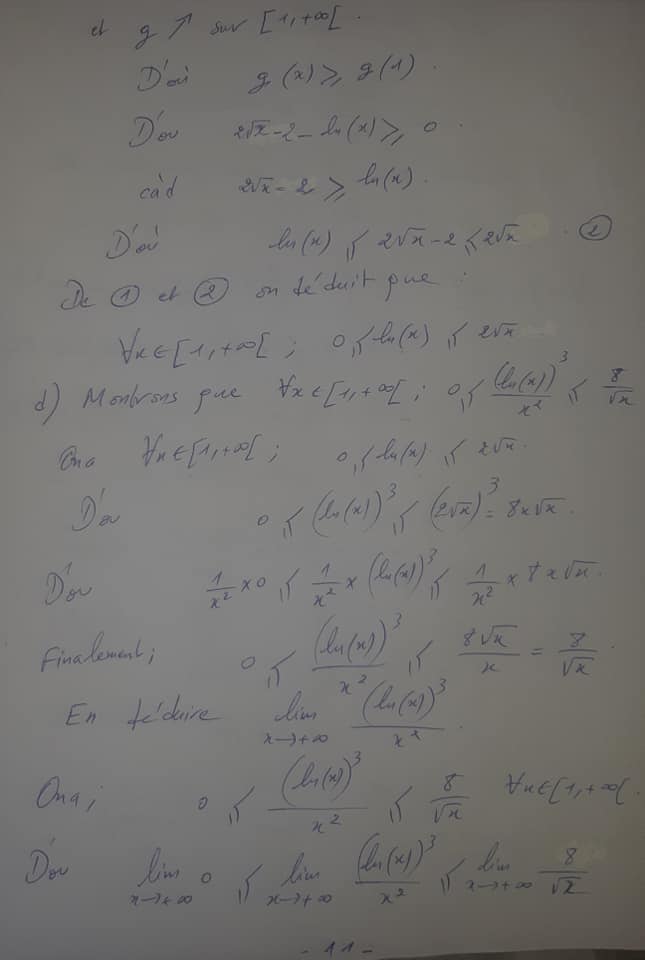 et g ↗ sur [1,+∞[.
D'où g(x) ⩾ g(1).
D'où 2√x - 2 - ln(x) ⩾ 0.
càd 2√x - 2 ⩾ ln(x).
D'où ln(x) ⩽ 2√x - 2 ⩽ 2√x. ②
De ① et ② on déduit que :
∀x∈[1,+∞[ ; 0 ⩽ ln(x) ⩽ 2√x
d) Montrons que ∀x∈[1,+∞[ ; 0 ⩽ (ln(x))³/x² ⩽ 8/√x
Ona ∀x∈[1,+∞[ ; 0 ⩽ ln(x) ⩽ 2√x.
D'où 0 ⩽ (ln(x))³ ⩽ (2√x)³ = 8x√x.
D'où 1/x² × 0 ⩽ 1/x² × (ln(x))³ ⩽ 1/x² × 8x√x.
Finalement ; 0 ⩽ (ln(x))³/x² ⩽ 8√x/x = 8/√x
En déduire lim x→+∞ (ln(x))³/x².
Ona ; 0 ⩽ (ln(x))³/x² ⩽ 8/√x ∀x∈[1,+∞[.
D'où lim x→+∞ 0 ⩽ lim x→+∞ (ln(x))³/x² ⩽ lim x→+∞ 8/√x
- 11 -